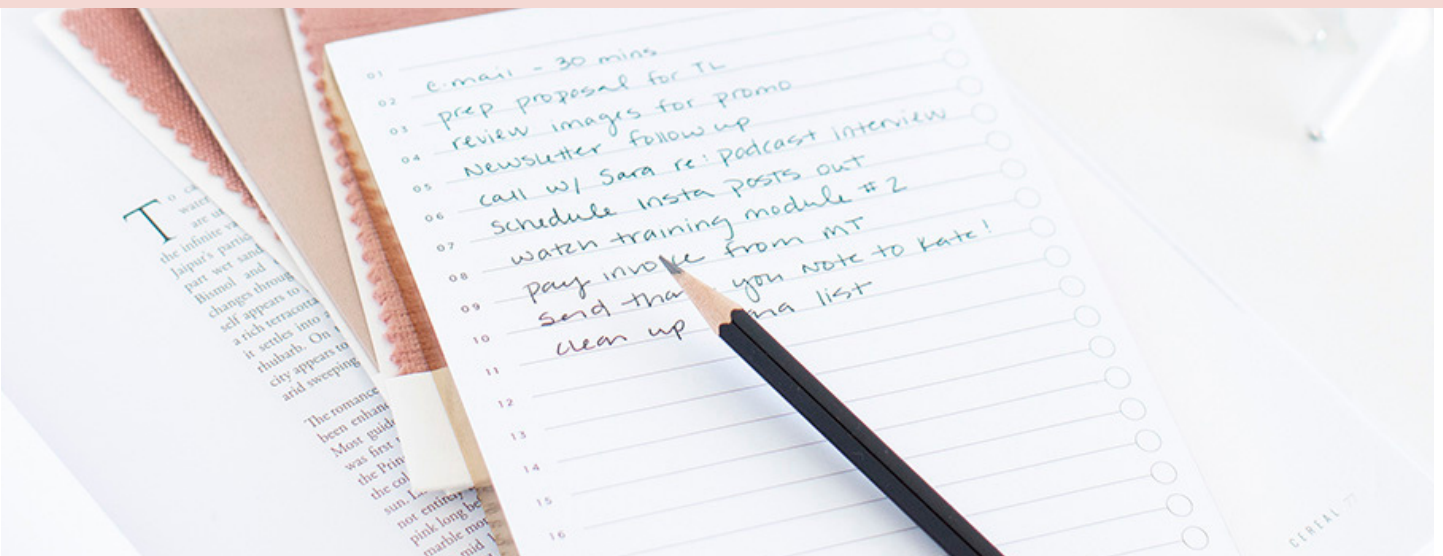 01 e.mail - 30 mins
02 prep proposal for TL
03 review images for promo
04 Newsletter follow up
05 call w/ Sara re: podcast interview
06 schedule insta posts out
07 watch training module #2
08 pay invoice from MT
09 send you Note to Kate!
10 clean up list
11
12
13
14
15
16
To
water
are
the infinite
Jaipur's
part wet sand
Bismol and
changes throug
self appears to
a rich terracotta
it settles into a
rhubarb. On
city appears to
arid sweeping
The romance
been enhan
Most guid
was first
the Prin
the col
sun.
not entirely
pink long be
marble mo
mid
CEREAL